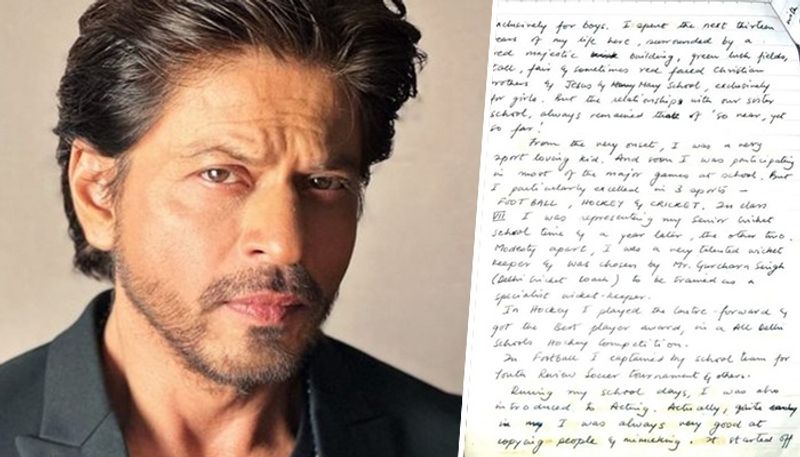 exclusively for boys. I spent the next thirteen
years of my life here, surrounded by a
red majestic building, green lush fields,
tall, fair & sometimes red faced Christian
brothers & Jesus & Mary School, exclusively
for girls. But the relationship with our sister
school, always remained that of 'so near, yet
so far!
From the very onset, I was a very
sport loving kid. And soon I was participating
in most of the major games at school. But
I particularly excelled in 3 sports –
FOOTBALL, HOCKEY & CRICKET. In class
VII I was representing my Senior Cricket
school time & a year later, the other two.
Modesty apart, I was a very talented wicket
keeper & was chosen by Mr. Gurcharan Singh
(Delhi Cricket Coach) to be trained as a
specialist wicket-keeper.
In Hockey I played the Centre-forward &
got the Best player award, in a All Delhi
Schools Hockey Competition.
In Football I captained by school team for
Youth Review Soccer Tournament & others.
During my school days, I was also
introduced to Acting. Actually, quite early
in my I was always very good at
copying people & mimicking. It started off